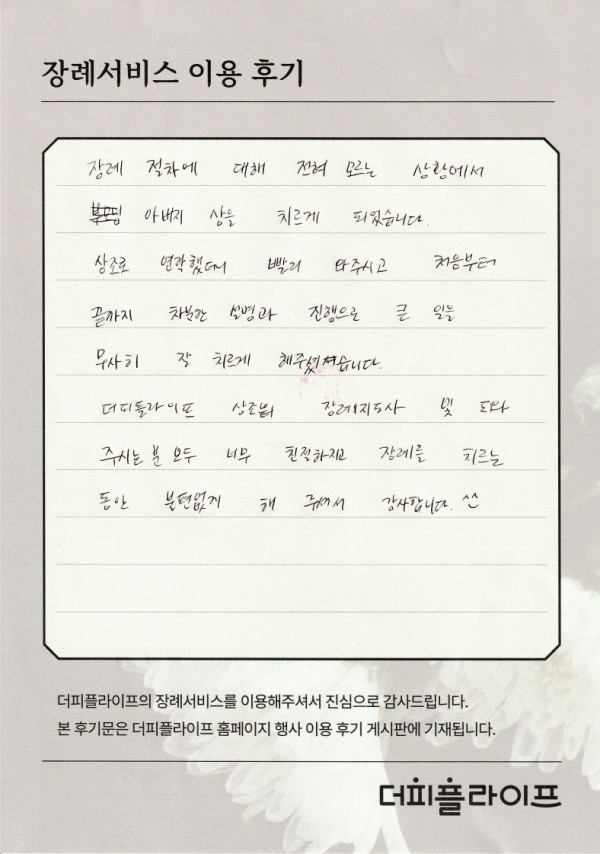 장례서비스 이용 후기
장례 절차에 대해 전혀 모르는 상황에서
아버지 상을 치르게 되었습니다.
상조로 연락했더니 빨리 와주시고 처음부터
끝까지 차분한 설명과 진행으로 큰 일을
무사히 잘 치르게 해주셨습니다.
더피플라이프 상조 장례지도사 및 도와
주시는 분 모두 너무 친절하시고 장례를 치르는
동안 불편없게 해 주셔서 감사합니다. ^^
더피플라이프의 장례서비스를 이용해주셔서 진심으로 감사드립니다.
본 후기문은 더피플라이프 홈페이지 행사 이용 후기 게시판에 기재됩니다.
더피플라이프